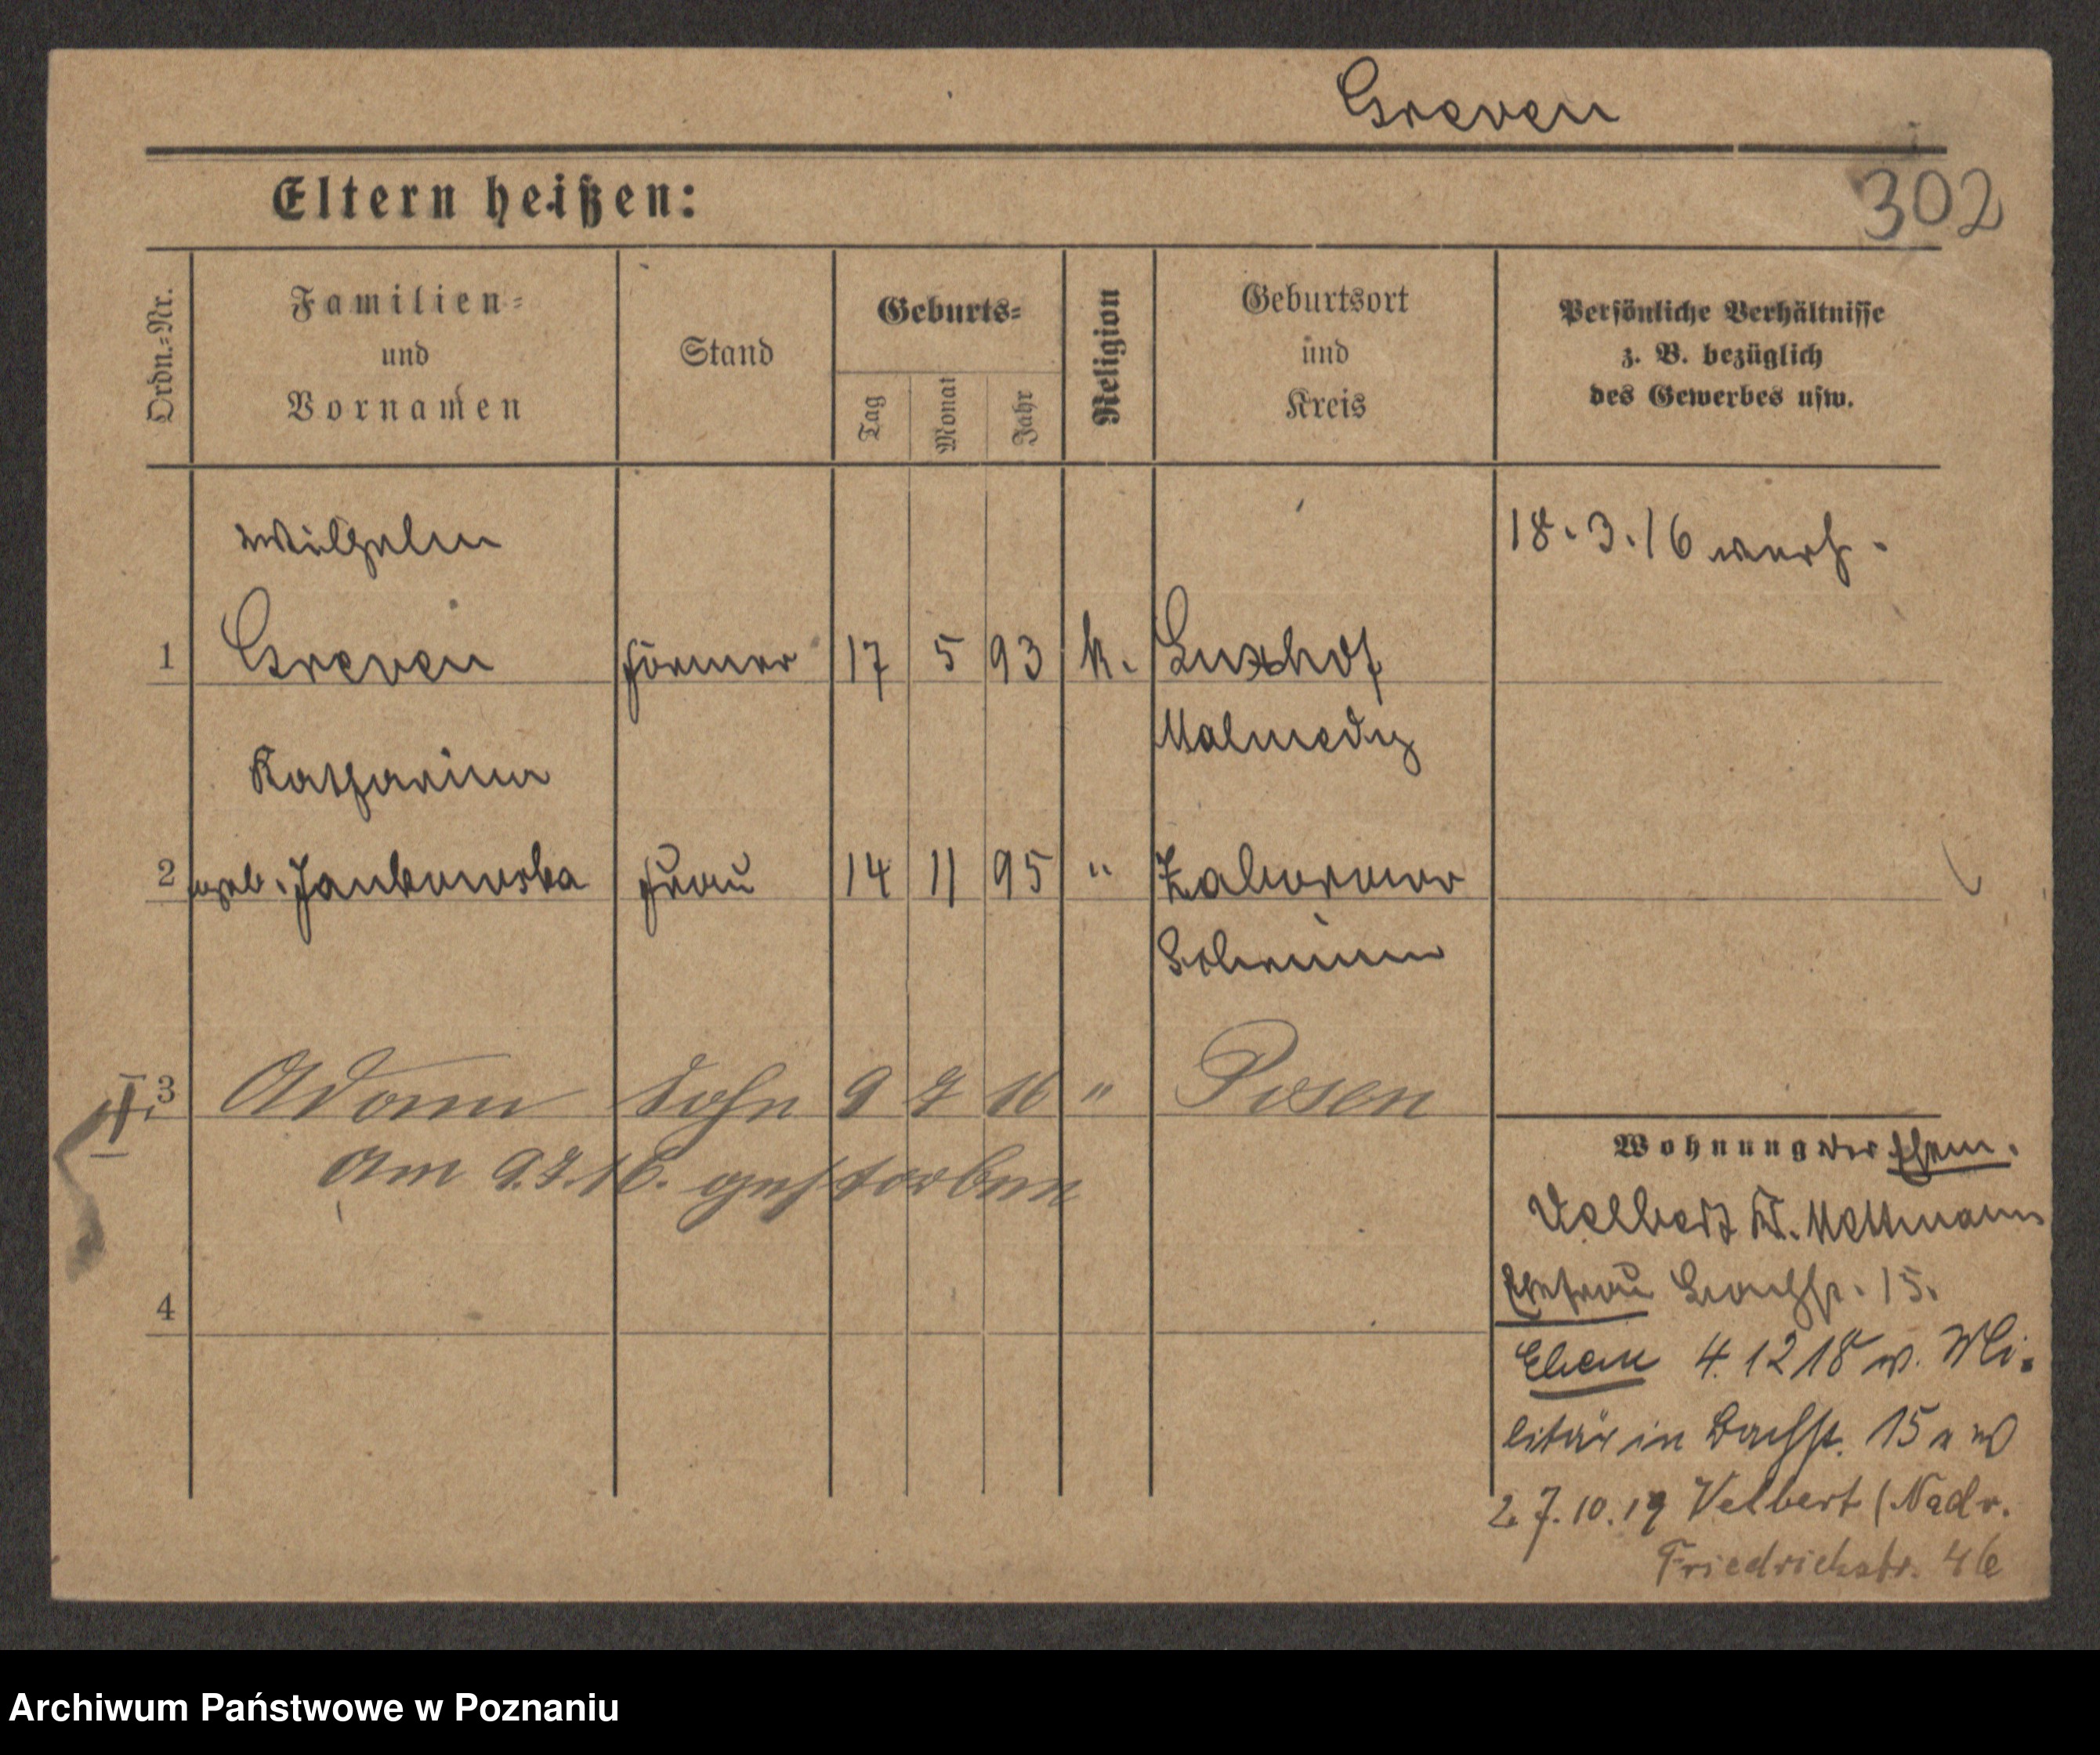 Greven
Eltern heißen:
302
Ordn.-Nr.
Familien-
und
Vornamen
Stand
Geburts-
Tag
Monat
Jahr
Religion
Geburtsort
und
Kreis
Persönliche Verhältnisse
z. B. bezüglich
des Gewerbes usw.
Wilhelm
18.3.16 verh.
1 Greven Former 17 5 93 k.
Malmedy
Katharina
2 geb. Jankowska Frau 14 11 95 "
Schrimm
3 Adam Sohn 9 7 16 " Posen
Am 9.7.16. gestorben
Wohnung der Ehem.
Velbert Kr. Mettmann
Ehefrau Bachstr. 15.
4
Ehem 4.12 18 v. Mi-
litär in Bachstr. 15
27.10.19 Velbert (Nadr.
Friedrichstr. 46
Archiwum Państwowe w Poznaniu